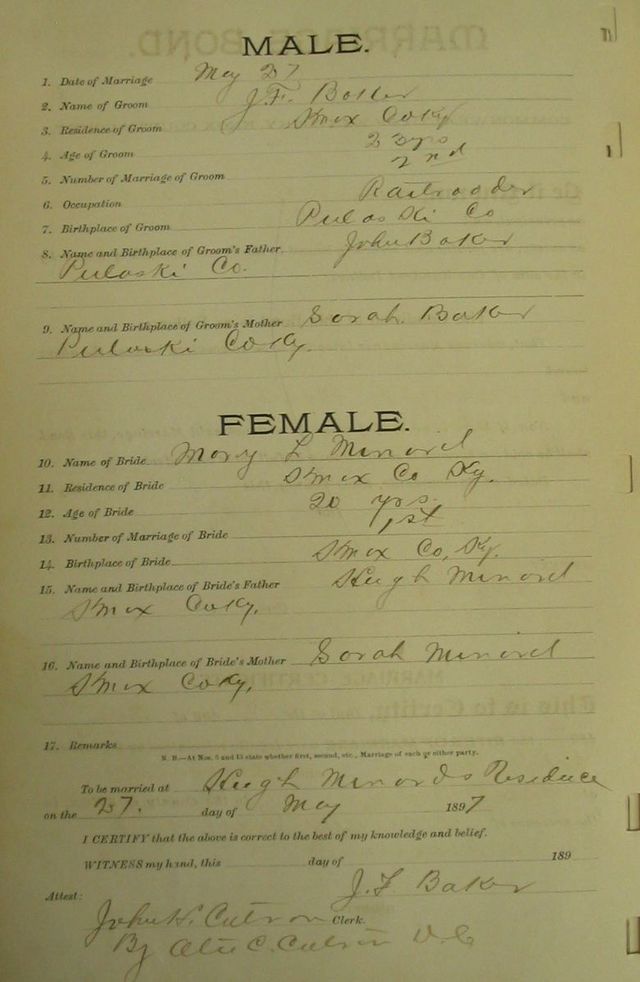 MALE.
1. Date of Marriage May 27
2. Name of Groom J. F. Baker
3. Residence of Groom Knox Co Ky
4. Age of Groom 23 yrs
5. Number of Marriage of Groom 2nd
6. Occupation Railroader
7. Birthplace of Groom Pulaski Co
8. Name and Birthplace of Groom's Father John Baker
Pulaski Co.
9. Name and Birthplace of Groom's Mother Sarah Baker
Pulaski Co Ky.
FEMALE.
10. Name of Bride Mary L Minord
11. Residence of Bride Knox Co Ky.
12. Age of Bride 20 yrs.
13. Number of Marriage of Bride 1st
14. Birthplace of Bride Knox Co, Ky.
15. Name and Birthplace of Bride's Father Hugh Minord
Knox Co Ky.
16. Name and Birthplace of Bride's Mother Sarah Minord
Knox Co Ky.
17. Remarks
N. B.—At Nos. 5 and 13 state whether first, second, etc., Marriage of each or either party.
To be married at Hugh Minords Residence
on the 27. day of May 1897
I CERTIFY that the above is correct to the best of my knowledge and belief.
WITNESS my hand, this day of 189
J. F. Baker
Attest:
John H. Catron Clerk.
By C. Catron D. C.